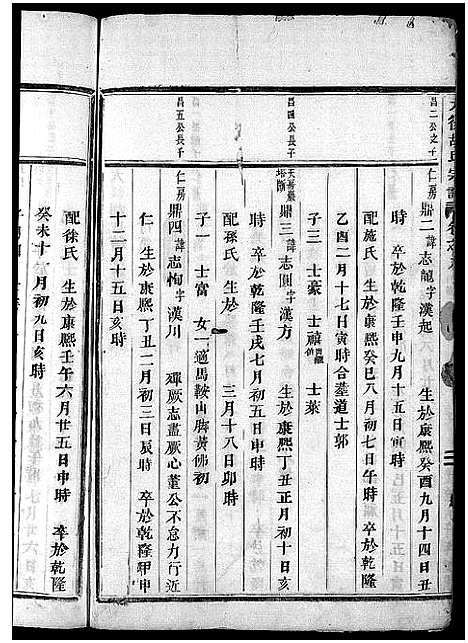 昌二公之子
仁房
鼎二諱志龍字漢起 生於康熙癸酉九月十四日丑
時 卒於乾隆壬申九月十五日寅時
配施氏 生於康熙癸巳八月初七日午時 卒於乾隆
乙酉二月十七日寅時合墓道士郭
子三 士豪 士禳 士萊
昌四公長子
天房
鼎三諱志圓字漢方 生於康熙丁丑正月初十日亥
時 卒於乾隆壬戌七月初五日申時
配孫氏 生於 三月十八日卯時
子一 士富 女一適馬鞍山脚黃佛初
昌五公長子
仁房
鼎四諱志恂字漢川 殫厥志盡厥心董公不怠力行近
仁 生於康熙丁丑二月初三日辰時 卒於乾隆甲申
十二月十五日亥時
配徐氏 生於康熙壬午六月廿五日申時 卒於乾隆
癸未十一月初九日亥時